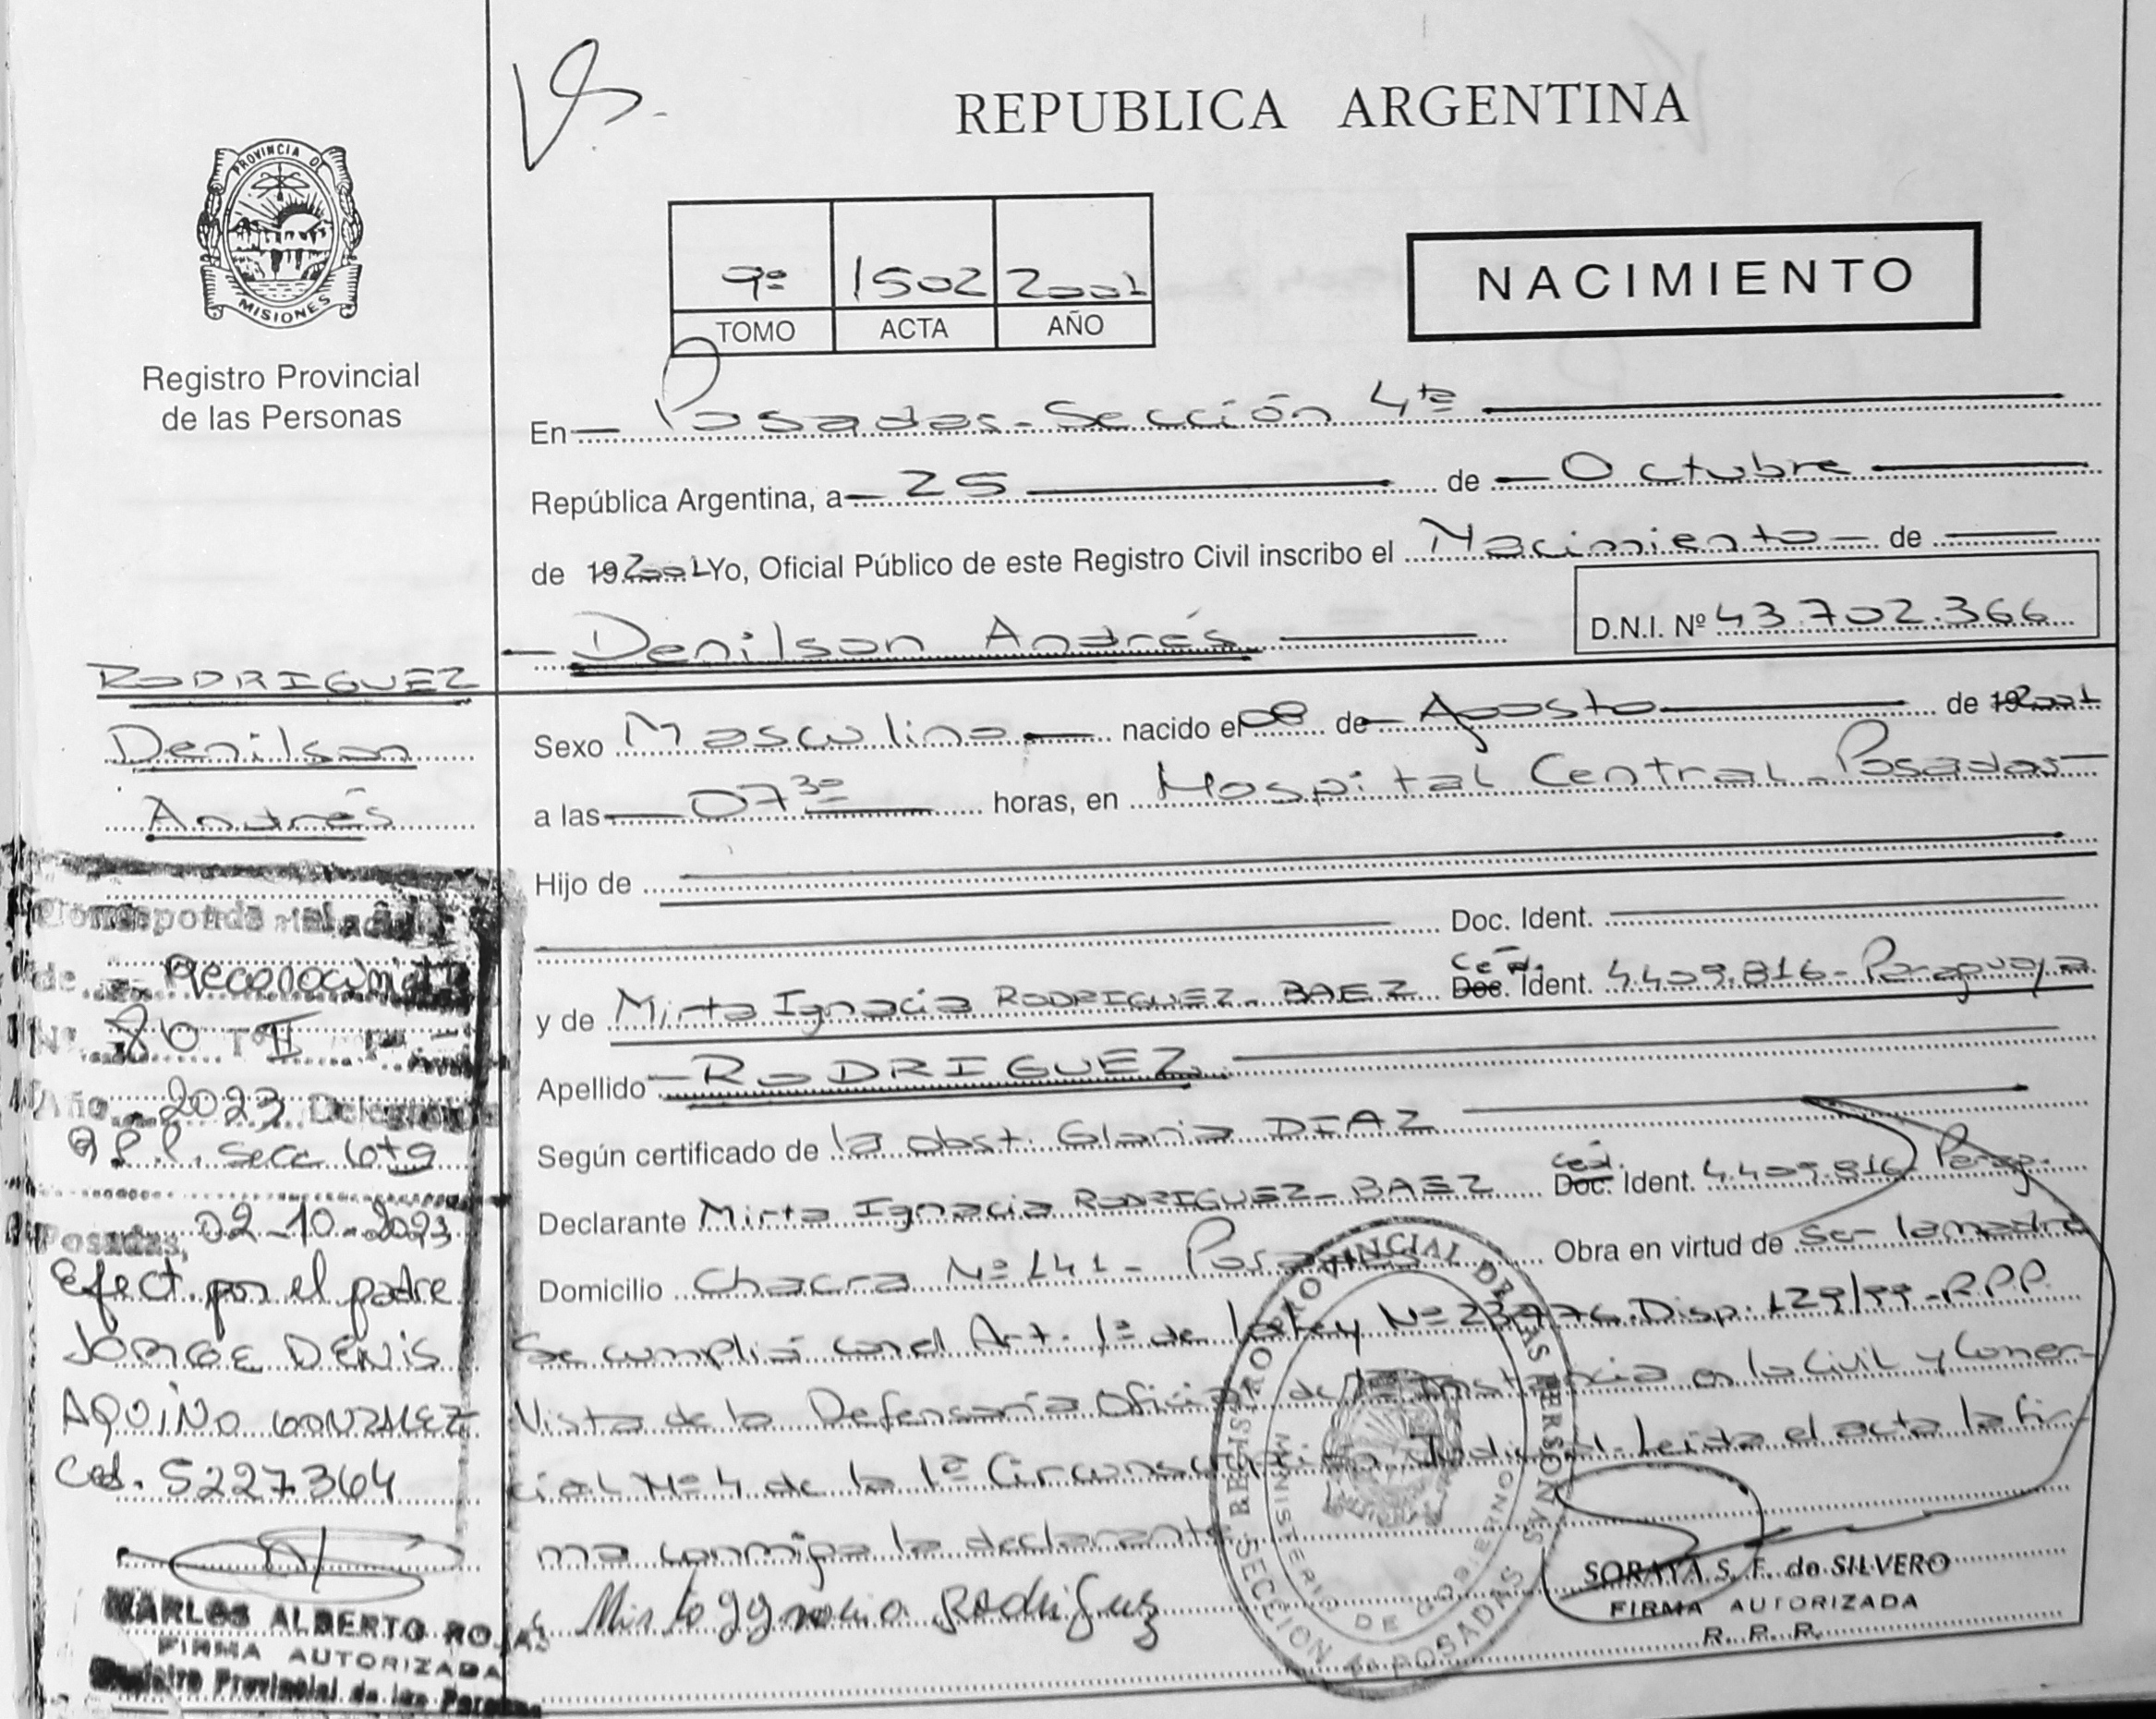 REPUBLICA ARGENTINA
PROVINCIA DE
MISIONES
Registro Provincial
de las Personas
9º 1502 2001
TOMO ACTA AÑO
NACIMIENTO
En Posadas - Sección 4ta
República Argentina, a 25 de Octubre
de 19 2001 Yo, Oficial Público de este Registro Civil inscribo el Nacimiento de
Denilson Andrés
D.N.I. Nº 43.702.366
Sexo Masculino nacido el 08 de Agosto de 19 2001
a las 07 30 horas, en Hospital Central - Posadas
Hijo de
Doc. Ident.
y de Mirta Ignacia RODRIGUEZ - BAEZ Doc. Céd. Ident. 4.409.816 - Paraguaya
Apellido RODRIGUEZ
Según certificado de la obst. Gloria DIAZ
Declarante Mirta Ignacia RODRIGUEZ - BAEZ Doc. Céd. Ident. 4.409.816 Parag.
Domicilio Chacra Nº 141 - Posadas Obra en virtud de ser la madre
Se cumplió con el Art. 1º de la Ley Nº Disp. 129/99 - R.P.P.
Vista de la Defensoría Oficial de 1ª Instancia en lo Civil y Comer-
cial Nº 4 de la 1ª Circunscripción Judicial - Leida el acta la fir-
ma conmigo la declarante
Mirta Ygnacia Rodriguez
SORAYA S. F. de SILVERO
FIRMA AUTORIZADA
R. P. P.
REGISTRO PROVINCIAL DE LAS PERSONAS
MINISTERIO DE GOBIERNO
SECCION 4ª POSADAS
RODRIGUEZ
Denilson
Andrés
Corresponde al acta
de Reconocimiento
Nº 80 Tº II Fº
Año 2023 Delegación
Secc 6ta
Posadas, 02-10-2023
Efect. por el padre
JORGE DENIS
AQUINO GONZALEZ
Ced. 5227364
CARLOS ALBERTO ROJAS
FIRMA AUTORIZADA
Registro Provincial de las Personas